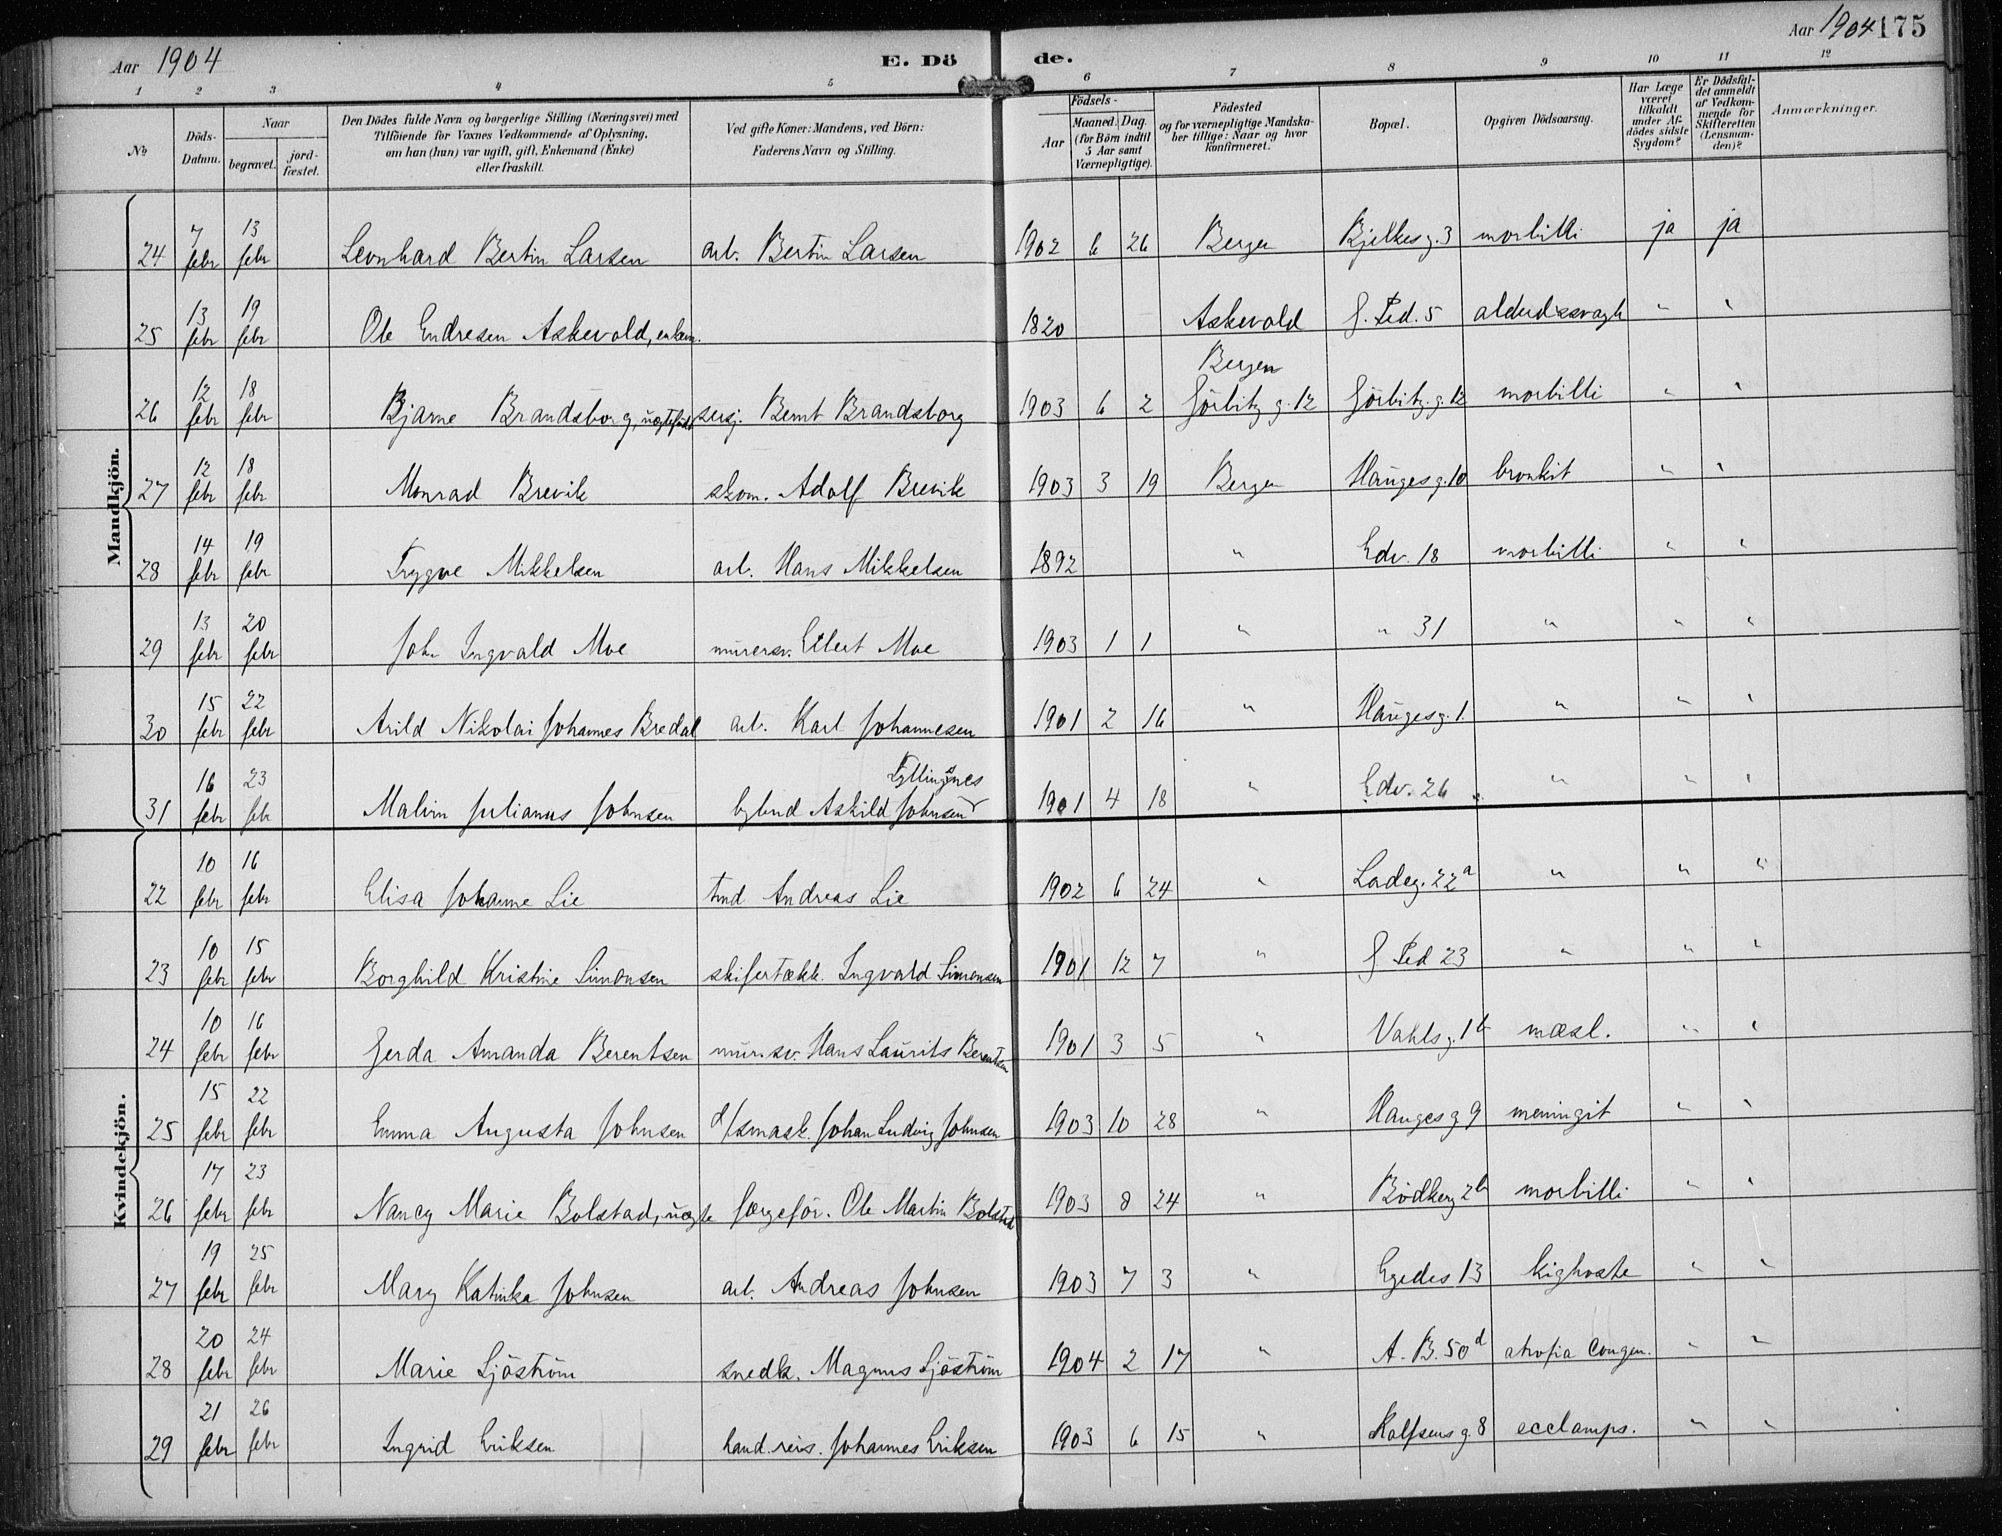 Aar 1904
E. Dö
de.
Aar 1904 175
1 2 3 4 5 6 7 8 9 10 11 12
No
Döds-Datum.
Naar
begravet.
jord-fæstet.
Den Dödes fulde Navn og borgerlige Stilling (Næringsvei) med
Tilföiende for Voxnes Vedkommende af Oplysning,
om han (hun) var ugift, gift, Enkemand (Enke)
eller fraskilt.
Ved gifte Koner: Mandens, ved Börn:
Faderens Navn og Stilling.
Födsels-
Aar
Maaned. Dag.
(for Börn indtil
5 Aar samt
Værnepligtige).
Födested
og for værnepligtige Mandska-
ber tillige: Naar og hvor
konfirmeret.
Bopæl.
Opgiven Dödsaarsag.
Har Læge
været
tilkaldt
under Af-
dödes sidste
Sygdom?
Er Dödsfal-
det anmeldt
af Vedkom-
mende for
Skifteretten
(Lensman-
den)?
Anmærkninger.
Mandkjön.
24 7 febr 13 febr Leonhard Bertin Larsen arb. Bertin Larsen 1902 6 26 Bergen Bjelkesg. 3 morbilli ja ja
25 13 febr 19 febr Ole Endresen Askevold, enkem. 1820 Askevold J. Ped. 5 alderdssvagh " "
26 12 febr 18 febr Bjarne Brandsborg, uægtefødt sersj. Bernt Brandsborg 1903 6 2 Bergen Görbitz g. 12 Görbitz. g. 12 morbilli " "
27 12 febr 18 febr Monrad Brevik skom. Adolf Brevik 1903 3 19 Bergen Hauges g. 10 bronkit " "
28 14 febr 19 febr Trygve Mikkelsen arb. Hans Mikkelsen 1892 " Edv. 18 morbilli " "
29 13 febr 20 febr John Ingvald Moe murersv. Eilert Moe 1903 1 1 " " 31 " " "
30 15 febr 22 febr Arild Nikolai Johannes Bredal arb. Karl Johannesen 1901 2 16 " Hauges g. 1. " " "
31 16 febr 23 febr Malvin Julianus Johnsen bybud Askild Johnsen Tyllingsnes 1901 4 18 " Edv. 26 " " "
Kvindekjön.
22 10 febr 16 febr Elisa Johanne Lie tmd Andreas Lie 1902 6 24 " Ladeg. 22a " " "
23 10 febr 15 febr Borghild Kristine Simonsen skifertækk. Ingvald Simonsen 1901 12 7 " J Ped 23 " " "
24 10 febr 16 febr Gerda Amanda Berentsen mursv. Hans Laurits Berentsen 1901 3 5 " Vahls g. 1b mæsl. " "
25 15 febr 22 febr Emma Augusta Johnsen d/smask. Johan Ludvig Johnsen 1903 10 28 " Hauges g 9 meningit " "
26 17 febr 23 febr Nancy Marie Bolstad, uægte færgefør. Ole Martin Bolstad 1903 8 24 " Bödkerg 2b morbilli " "
27 19 febr 25 febr Mary Katinka Johnsen arb. Andreas Johnsen 1903 7 3 " Egedes 13 kighoste " "
28 20 febr 24 febr Marie Sjöström snedk. Magnus Sjöström 1904 2 17 " A. B. 50d atrofia Congen. " "
29 21 febr 26 febr Ingrid Eriksen hand. reis. Johannes Eriksen 1903 6 15 " Kalfsens g. 8 ecclamps. " "